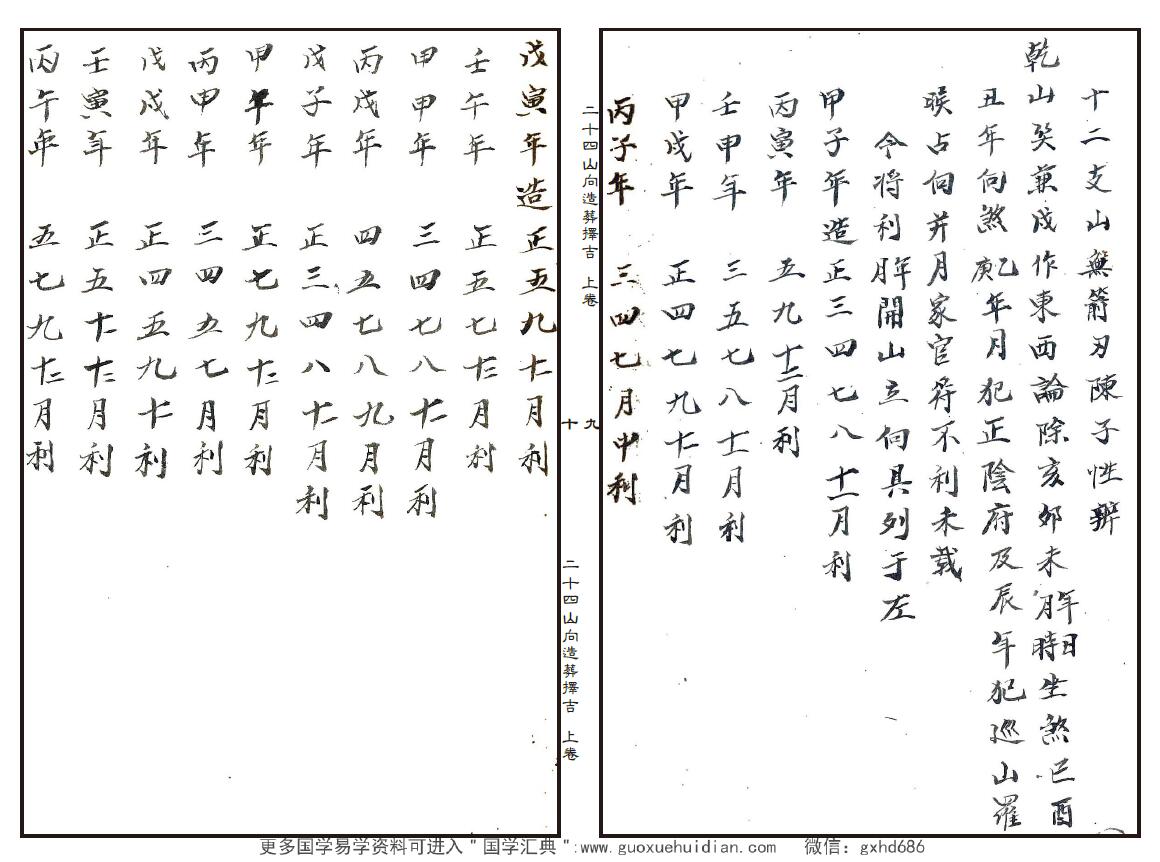 十二支山無箭刃陳子性辨
乾山癸兼戌作東西論除亥卯未年月日時坐煞巳酉
丑年向煞乙庚年月犯正陰府及辰年犯巡山羅
睺占向并月家官符不利未載
今將利年月開山立向具列于左
甲子年造正三四七八十一月利
丙寅年 五九十二月利
壬申年 三五七八十一月利
甲戌年 正四七九十一月利
丙子年 三四七月中利
二十四山向造葬擇吉 上卷 九
二十四山向造葬擇吉 上卷 十
戊寅年造正五九十月利
壬午年 正五七十二月利
甲申年 三四七八十一月利
丙戌年 四五七八九月利
戊子年 正三四八十一月利
甲午年 正七九十二月利
丙申年 三四五七月利
戊戌年 正四五九十一利
壬寅年 正五十十二月利
丙午年 五七九十二月利
更多国学易学资料可进入＂国学汇典＂:www.guoxuehuidian.com 微信：gxhd686